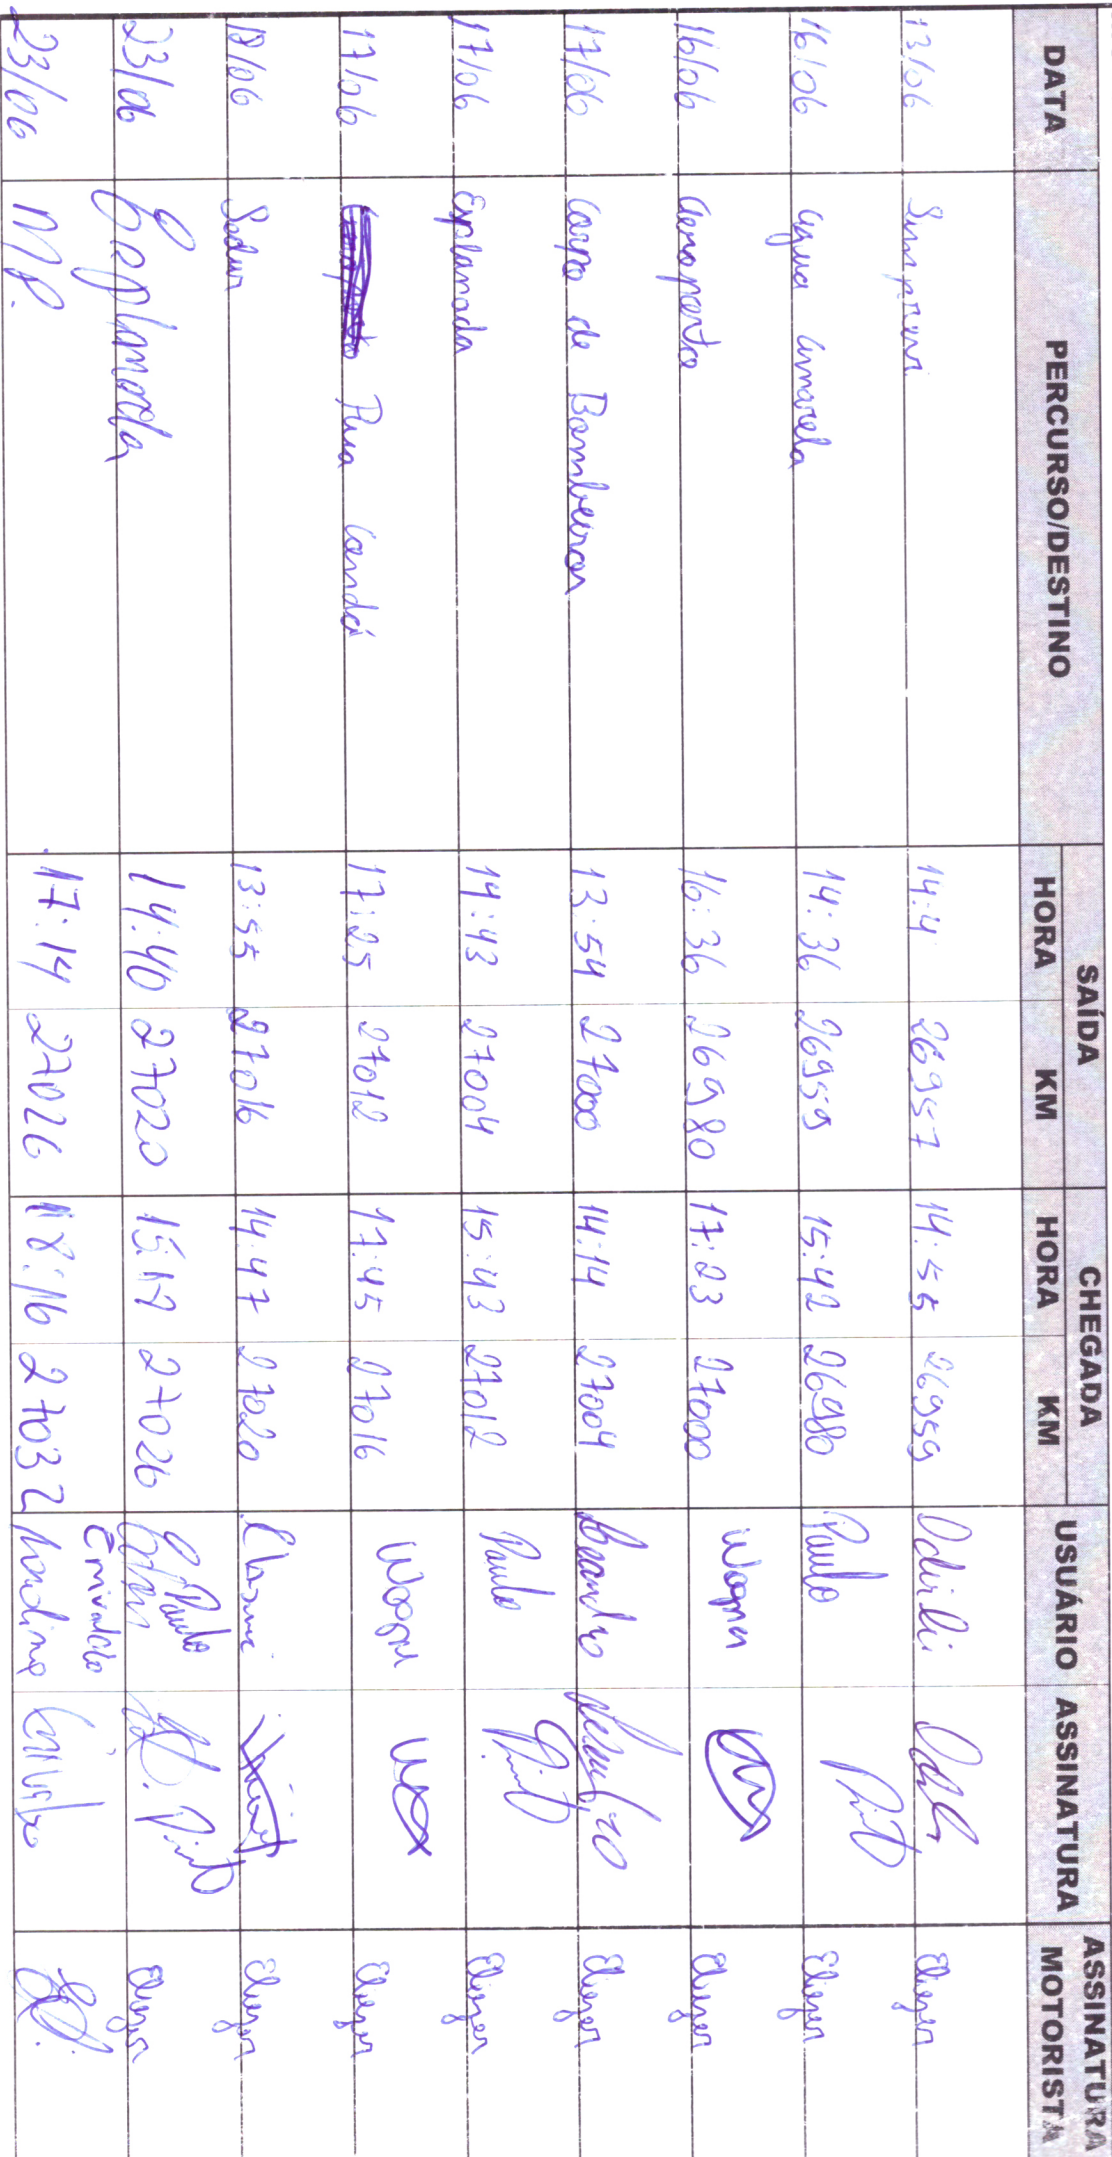 DATA PERCURSO/DESTINO SAÍDA CHEGADA USUÁRIO ASSINATURA ASSINATURA MOTORISTA
HORA KM HORA KM
13/06 14:4 26957 14:55 26959 Eliezer
16/06 agua amarela 14:36 26959 15:42 26980 Paulo Pinto Eliezer
16/06 aeroporto 16:36 26980 17:23 27000 Wagner Eliezer
17/06 corpo de Bombeiros 13:54 27000 14:14 27004 Leandro Leandro Eliezer
17/06 Explanada 14:43 27004 15:43 27012 Paulo Pinto Eliezer
17/06 Rua Candói 17:25 27012 17:45 27016 Wagner Eliezer
18/06 Sedur 13:55 27016 14:47 27020 Eliezer
23/06 Esplanada 14:40 27020 15:17 27026 Paulo Pinto Eliezer
23/06 MP. 17:14 27026 18:16 27032 Erivaldo